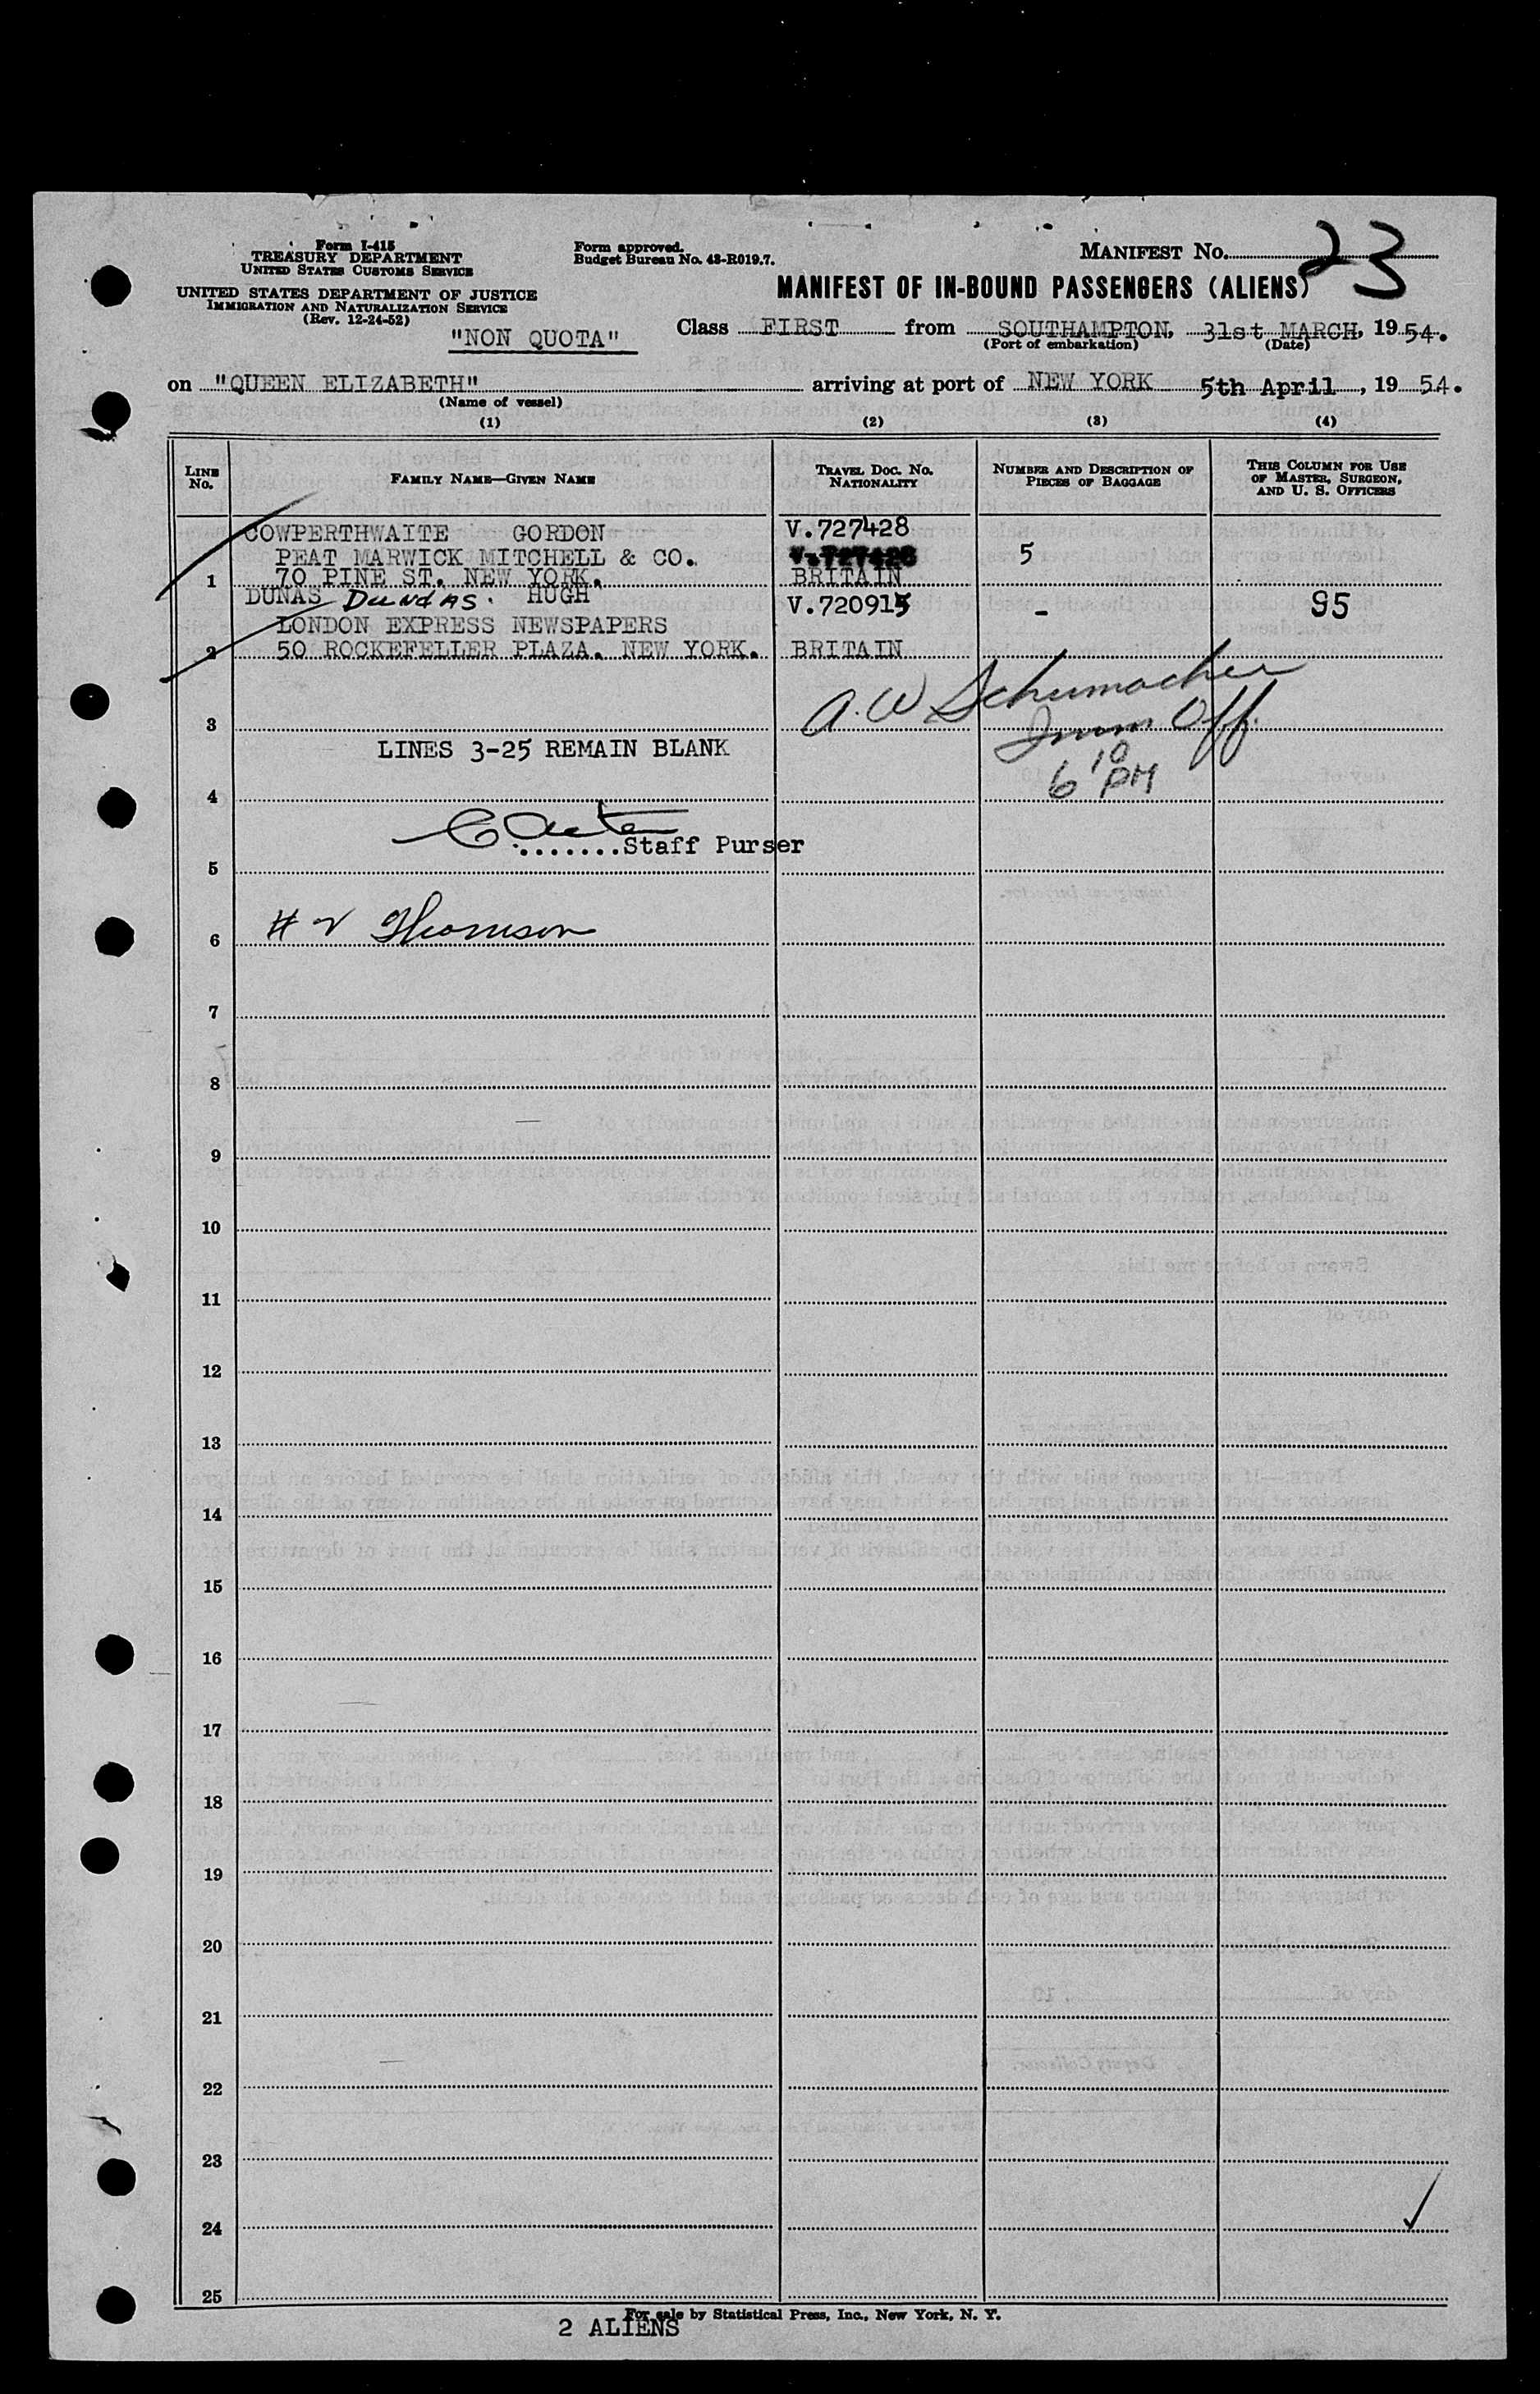 Form I-415
TREASURY DEPARTMENT
UNITED STATES CUSTOMS SERVICE
UNITED STATES DEPARTMENT OF JUSTICE
IMMIGRATION AND NATURALIZATION SERVICE
(Rev. 12-24-52)
Form approved.
Budget Bureau No. 43-R019.7.
MANIFEST No. 23
MANIFEST OF IN-BOUND PASSENGERS (ALIENS)
"NON QUOTA"
Class FIRST from SOUTHAMPTON, 31st MARCH, 19 54.
(Port of embarkation) (Date)
on "QUEEN ELIZABETH" arriving at port of NEW YORK 5th April, 19 54.
(Name of vessel)
(1) (2) (3) (4)
LINE No. FAMILY NAME—GIVEN NAME TRAVEL DOC. NO. NATIONALITY NUMBER AND DESCRIPTION OF PIECES OF BAGGAGE THIS COLUMN FOR USE OF MASTER, SURGEON, AND U. S. OFFICERS
COWPERTHWAITE GORDON V.727428
PEAT MARWICK MITCHELL & CO. V.727428 5
1 70 PINE ST. NEW YORK. BRITAIN
DUNAS DUNDAS. HUGH V.720915 - 95
LONDON EXPRESS NEWSPAPERS
2 50 ROCKEFELLER PLAZA. NEW YORK. BRITAIN
A. W Schumacher
3 Imm Off.
LINES 3-25 REMAIN BLANK
6 10 PM
4
.......Staff Purser
5
6 H V Thomson
7
8
9
10
11
12
13
14
15
16
17
18
19
20
21
22
23
24
25
For sale by Statistical Press, Inc., New York, N. Y.
2 ALIENS